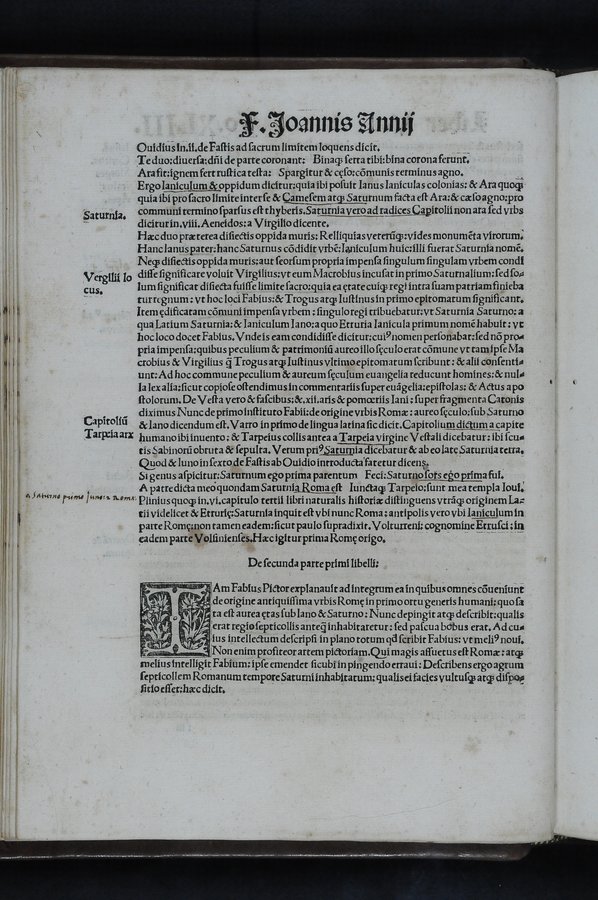 F. Joannis Annij
Ouidius In.ii.de Fastis ad sacrum limitem loquens dicit.
Te duo:diuersa:dñi de parte coronant: Binaq; serta tibi:bina corona ferunt.
Ara fit:ignem fert rustica testa: Spargitur & cęso:cōmunis terminus agno.
Ergo Ianiculum & oppidum dicitur:quia ibi posuit Ianus Ianiculas colonias: & Ara quoq;
quia ibi pro sacro limite inter se & Camesem atq; Saturnum facta est Ara:& cæso agno:pro
communi termino sparsus est thyberis.Saturnia vero ad radices Capitolii non ara sed vrbs
Saturnia.
dicitur in.viii.Aeneidos:a Virgilio dicente.
Hæc duo præterea disiectis oppida muris: Relliquias veterūq;:vides monumēta virorum.
Hanc Ianus pater:hanc Saturnus cōdidit vrbē:Ianiculum huic:illi fuerat Saturnia nomē.
Neq; disiectis oppida muris:aut seorsum propria impensa singulum singulam vrbem condi
Vergilii lo
cus.
disse significare voluit Virgilius:vt eum Macrobius incusat in primo Saturnalium:sed so-
lum significat disiecta fuisse limite sacro:quia ea ętate cuiq; regi intra suam patriam finieba
tur regnum: vt hoc loci Fabius:& Trogus atq; Iustinus in primo epitomatum significant.
Item ędificatam cōmuni impensa vrbem: singulo regi tribuebatur:vt Saturnia Saturno:a
qua Latium Saturnia:& Ianiculum Iano:a quo Etruria Ianicula primum nomē habuit: vt
hoc loco docet Fabius. Vnde is eam condidisse dicitur:cui⁹ nomen personabat:sed nō pro-
pria impensa:quibus peculium & patrimoniū aureo illo sęculo erat cōmune vt tam ipse Ma
crobius & Virgilius q̄ Trogus atq; Iustinus vltimo epitomatum scribunt: & alii consenti-
unt: Ad hoc commune peculium & aureum sęculum euangelia reducunt homines:& nul-
la lex alia:sicut copiose ostendimus in commentariis super euāgelia:epistolas: & Actus apo
stolorum. De Vesta vero & fascibus:&.xii.aris & pomœriis Iani: super fragmenta Catonis
diximus Nunc de primo instituto Fabii:de origine vrbis Romæ: aureo sęculo:sub Saturno
Capitoliū
Tarpeia arx
& Iano dicendum est. Varro in primo de lingua latina sic dicit. Capitolium dictum a capite
humano ibi inuento: & Tarpeius collis antea a Tarpeia virgine Vestali dicebatur: ibi scu-
tis Sabinorū obruta & sepulta. Verum pri⁹ Saturnia dicebatur & ab eo late Saturnia terra.
Quod & Iuno in sexto de Fastis ab Ouidio introducta fatetur dicens.
Si genus aspicitur:Saturnum ego prima parentum Feci:Saturno sors ego prima fui.
A patre dicta meo quondam Saturnia Roma est Iunctaq; Tarpeio:sunt mea templa Ioui.
a Saturno primo Juncta Roma.
Plinius quoq; in.vi.capitulo tertii libri naturalis historiæ distinguens vtrāq; originem La-
tii videlicet & Etrurię:Saturnia inquit est vbi nunc Roma: antipolis vero vbi Ianiculum in
parte Romę:non tamen eadem:sicut paulo supradixit. Volturreni: cognomine Etrusci:in
eadem parte Volsinienses.Hæc igitur prima Romę origo.
De secunda parte primi libelli:
IAm Fabius Pictor explanauit ad integrum ea in quibus omnes cōueniunt
de origine antiquissima vrbis Romę in primo ortu generis humani:quo sa
ta est aurea ętas sub Iano & Saturno: Nunc depingit atq; describit:qualis
erat regio septicollis anteq̄ inhabitaretur: sed pascua bobus erat. Ad cu-
ius intellectum descripsi in plano totum qd̄ scribit Fabius: vt meli⁹ noui.
Non enim profiteor artem pictoriam.Qui magis assuetus est Romæ: atq;
melius intelligit Fabium:ipse emendet sicubi in pingendo erraui: Describens ergo agrum
septicollem Romanum tempore Saturni inhabitatum: qualis ei facies vultusq; atq; dispo-
sitio esset:hæc dicit.